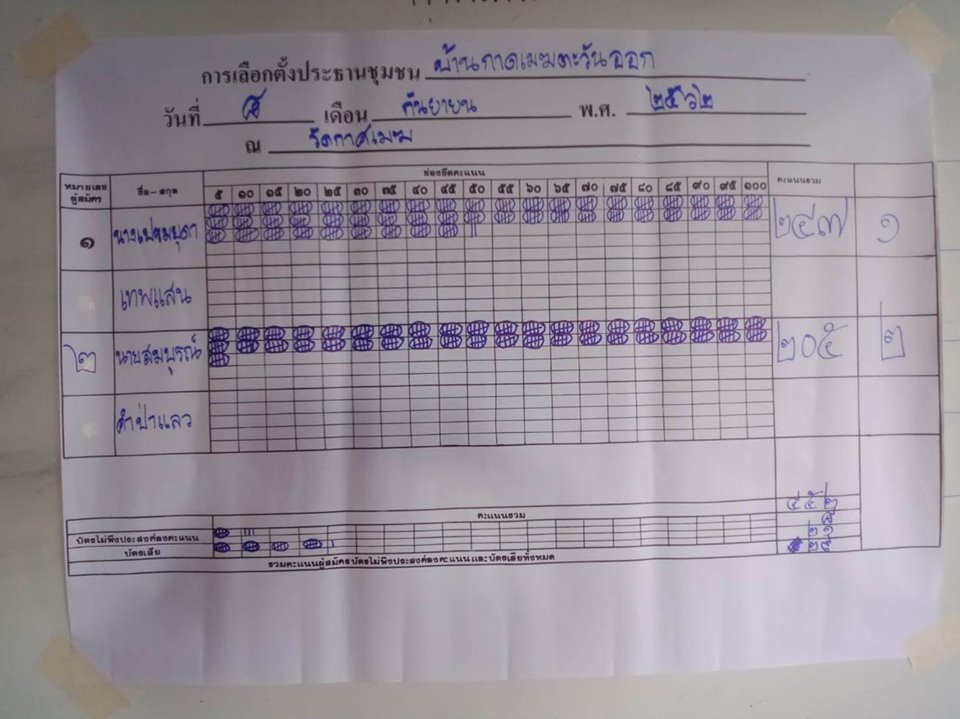 การเลือกตั้งประธานชุมชน บ้านกาดเมฆตะวันออก
วันที่ ๘ เดือน กันยายน พ.ศ. ๒๕๖๒
ณ วัดกาศเมฆ
หมายเลขผู้สมัคร ชื่อ-สกุล ช่องขีดคะแนน คะแนนรวม
๕ ๑๐ ๑๕ ๒๐ ๒๕ ๓๐ ๓๕ ๔๐ ๔๕ ๕๐ ๕๕ ๖๐ ๖๕ ๗๐ ๗๕ ๘๐ ๘๕ ๙๐ ๙๕ ๑๐๐
๑ ๒๔๗ ๑
เทพแสน
๒ นายสมบูรณ์ ๒๐๕ ๒
คำป่าแลว
๔๕๒
คะแนนรวม
บัตรไม่พึงประสงค์ลงคะแนน
บัตรเสีย ๒๑
รวมคะแนนผู้สมัคร บัตรไม่พึงประสงค์ลงคะแนน และบัตรเสียทั้งหมด